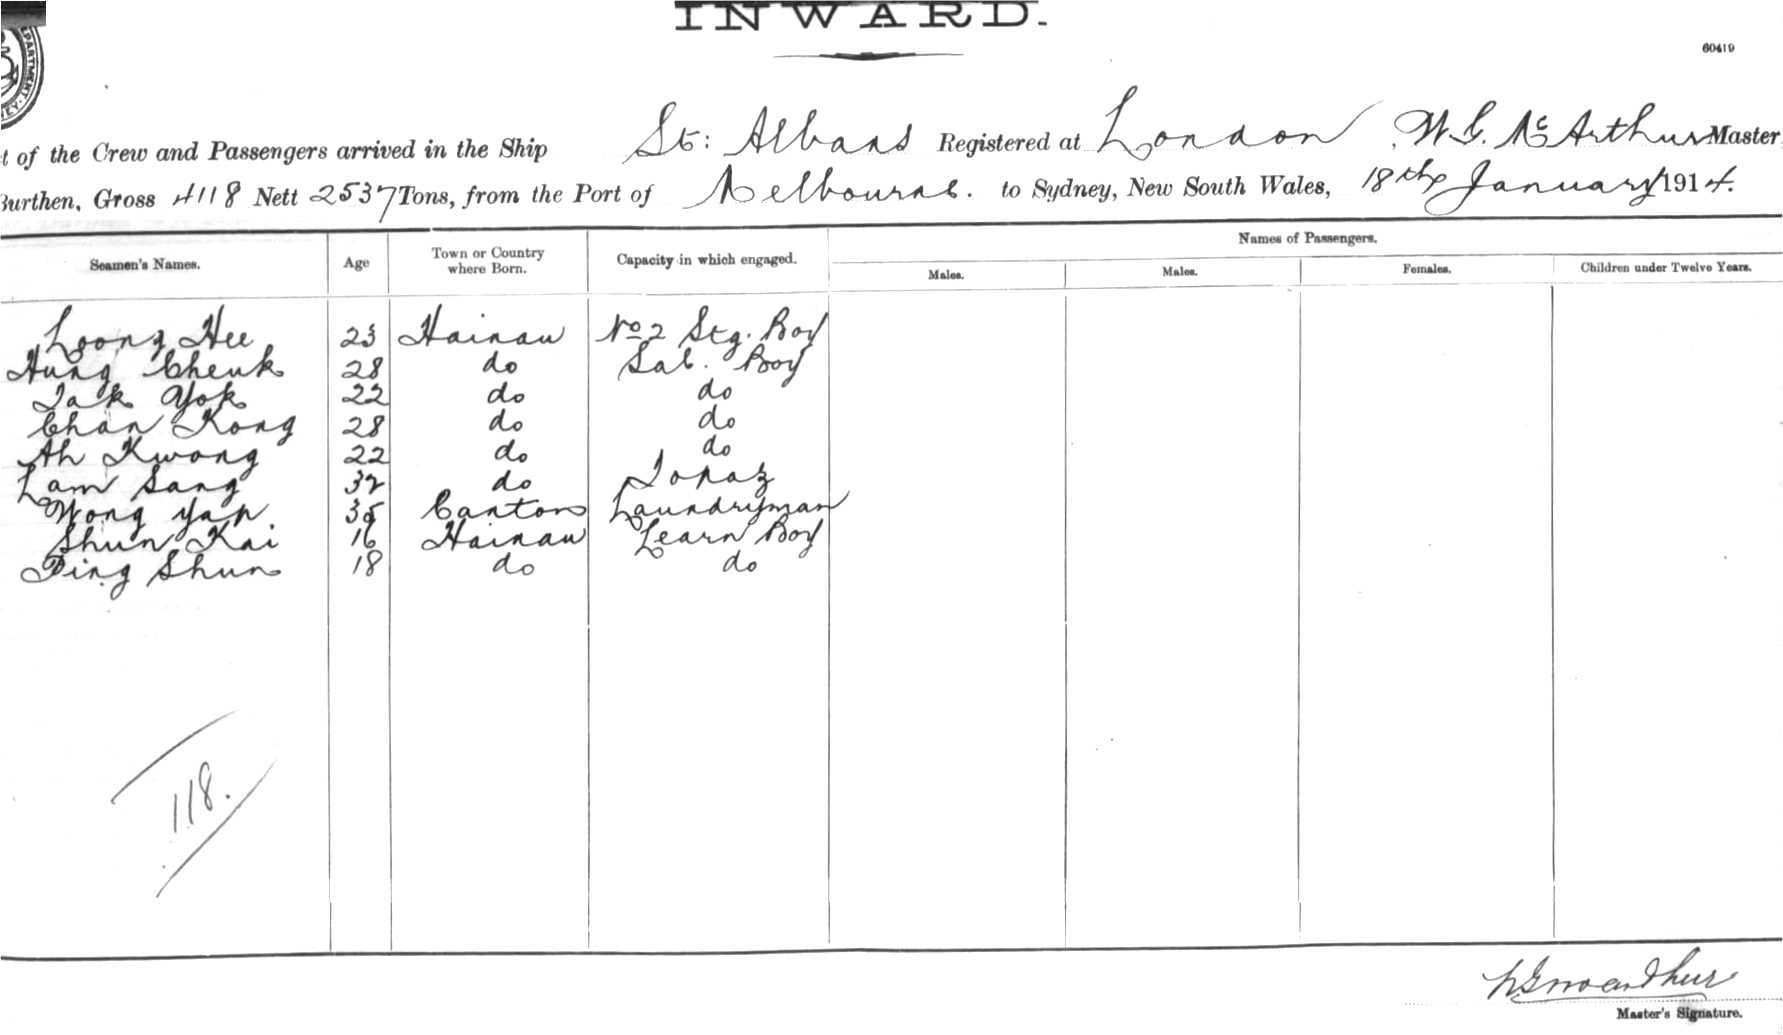 INWARD.
60419
of the Crew and Passengers arrived in the Ship St: Albans Registered at London, W. G. McArthur Master
Burthen, Gross 4118 Nett 2537 Tons, from the Port of Melbourne. to Sydney, New South Wales, 18th January 1914.
Seamen's Names. Age Town or Country where Born. Capacity in which engaged. Names of Passengers.
Males. Males. Females. Children under Twelve Years.
Loong Hee 23 Hainau No 2 Stg. Boy
Hung Cheuk 28 do Sal. Boy
Tak Yok 22 do do
Chan Kong 28 do do
Ah Kwong 22 do do
Lam Sang 32 do Topaz
Wong Yan. 35 Canton Laundryman
Shun Kai 16 Hainau Learn Boy
Ping Shun 18 do do
118.
Master's Signature.